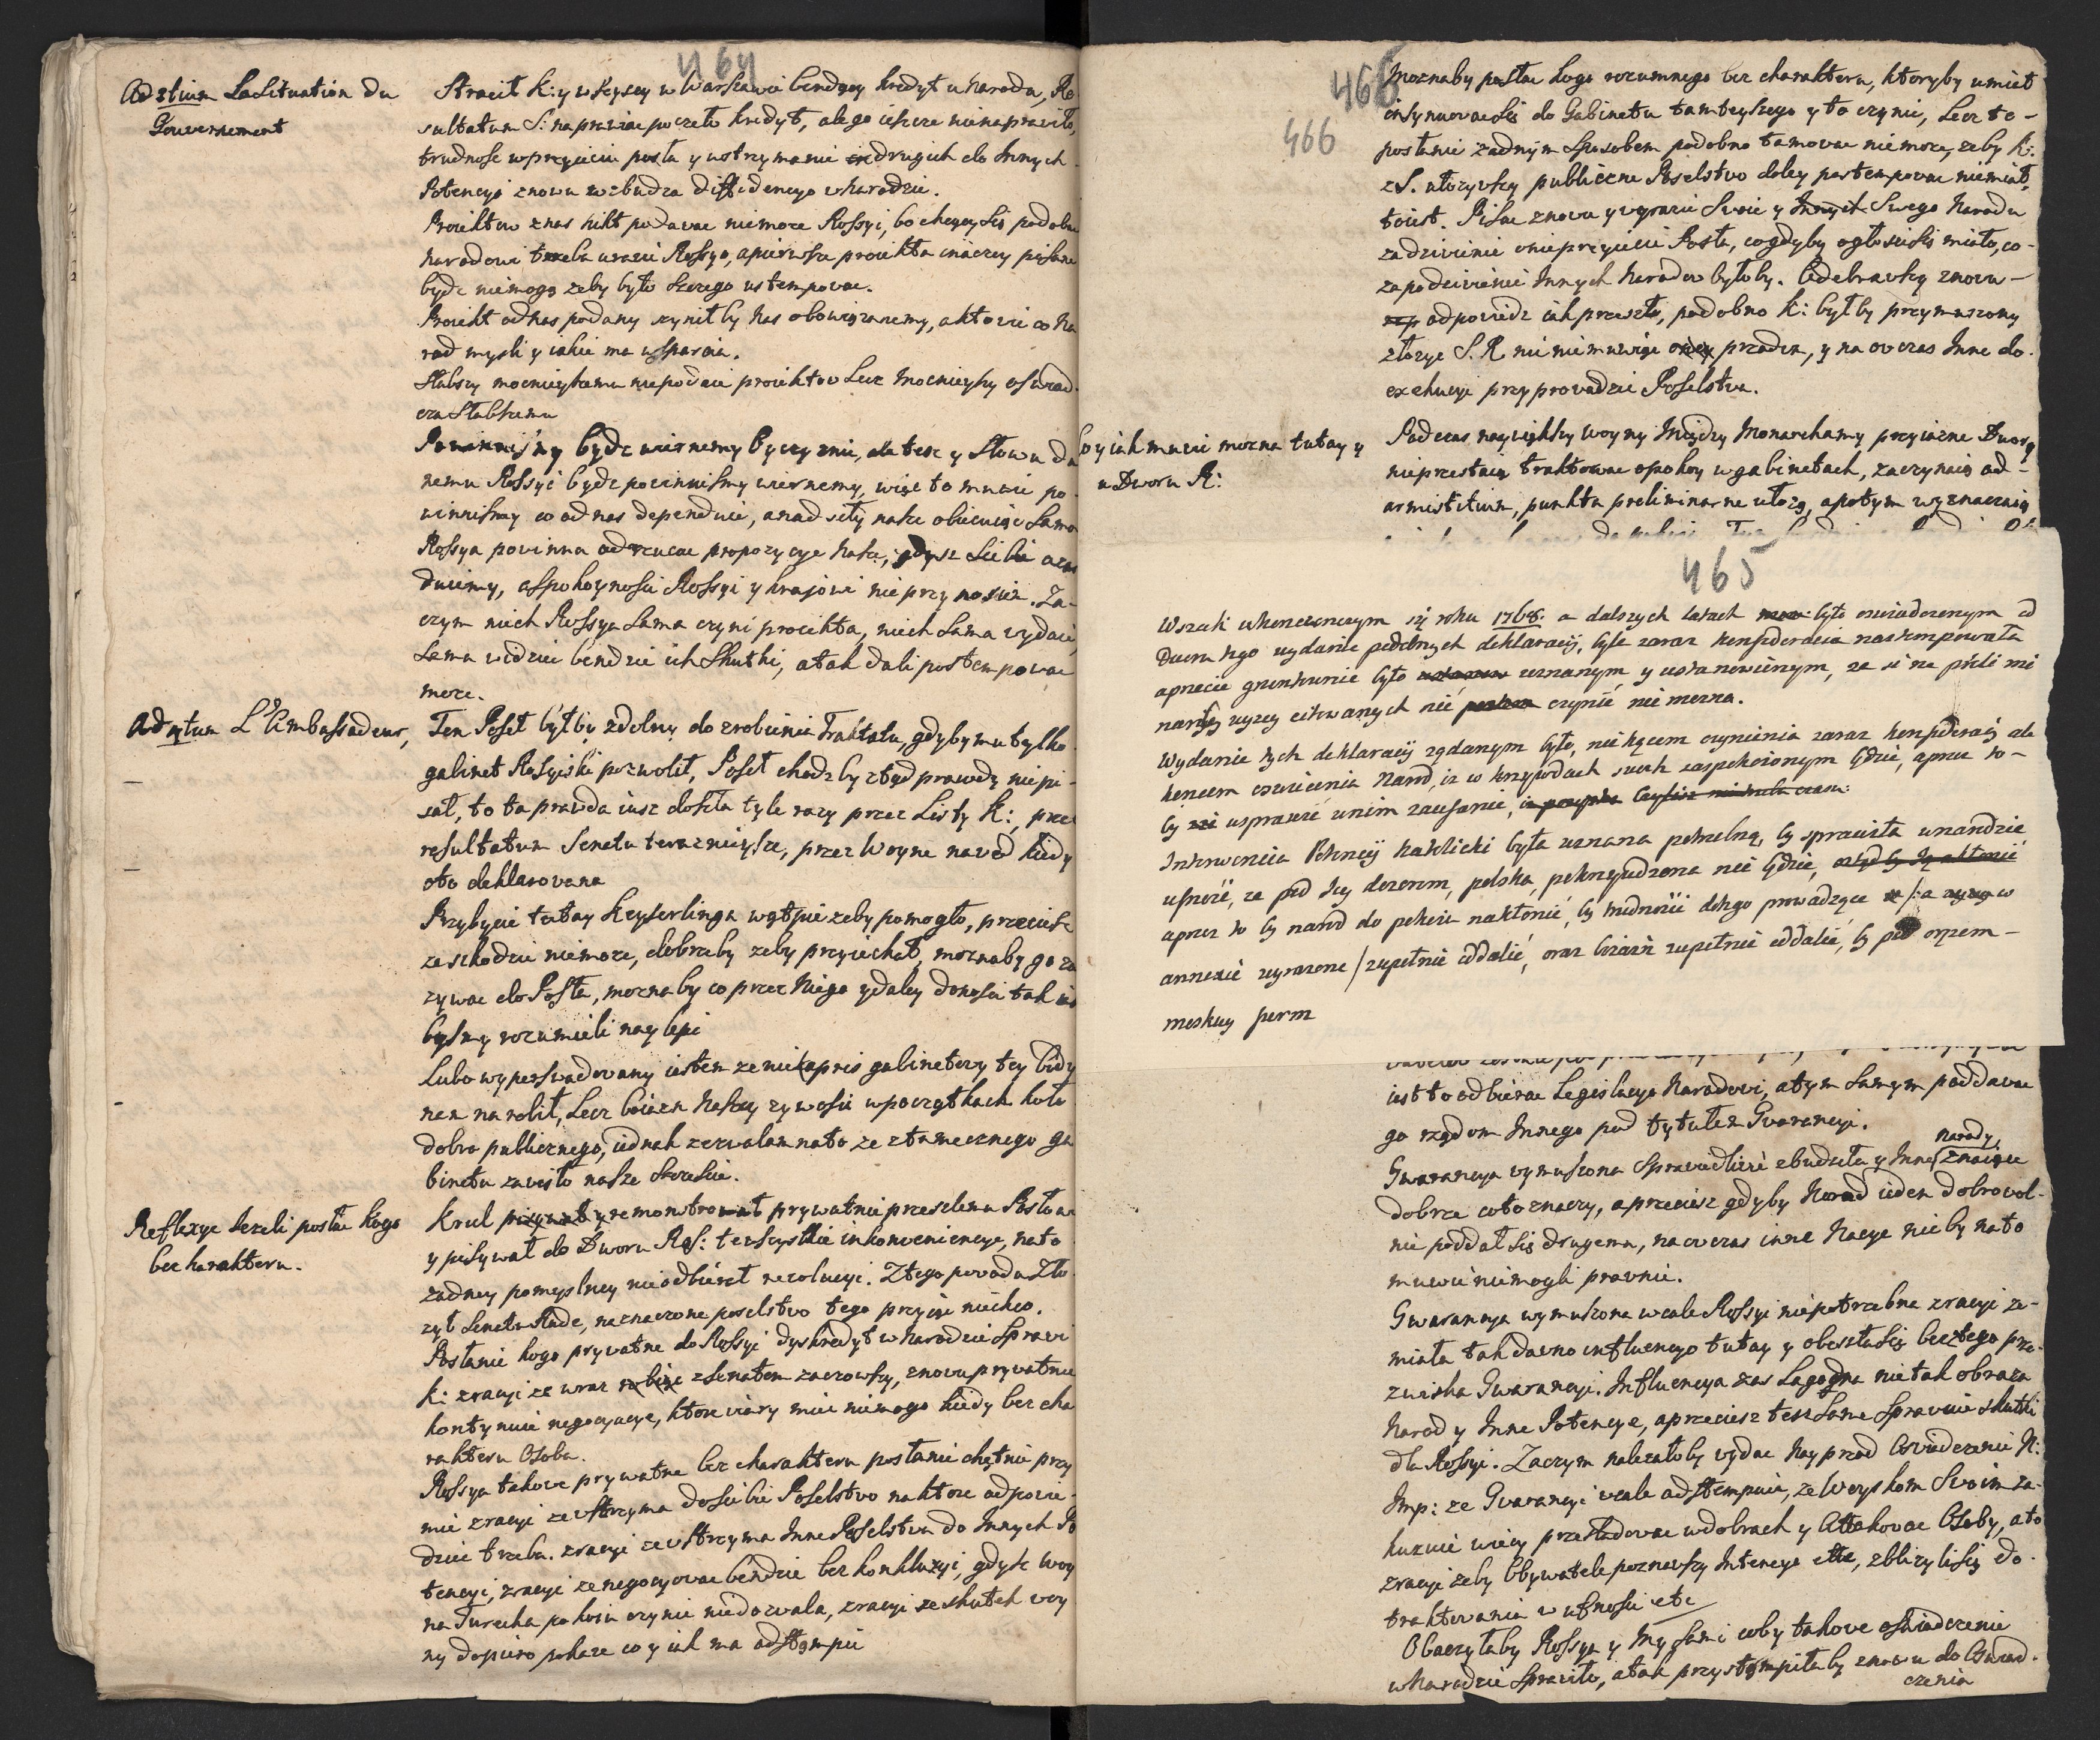 464
Ad 3tium La Situation du
Gouvernement
Stracił K: y wszyscy w Warszawie bendący kredyt u Narodu, Re-
sultatum S: naprawiac poczeło kredyt, ale go ieszcze nienaprawiło,
trudnosc w przyięciu posła y wstrzymanie drugich do Innych
Potencyi znowu wzbudza diffidencyą w Narodzie.
Proiektow z nas nikt podawac niemoze Rossyi, bo chcący Się podobac
Narodowi trzeba urazic Rossyą, a pierwsze proiekta inaczey pisane
bydz niemogą zeby było Szczego ustempowac.
Proiekt od nas podany czyniłby Nas obowiązanemy, a kto wie co Na
rod mysli y iakie ma wsparcia.
Słabszy mocnieyszemu niepodaie proiektow Lecz Mocnieyszy oswiad-
cza Słabszemu
Powinnismy bydz wiernemy Oyczyznie, ale tesz y Słowu da
nemu Rossyi bydz powinnismy wiernemy, więc to mowic po-
winnismy co od nas dependuie, a nad siły nasze obiecuiąc Sama
Rossya powinna odrzucac propozycye Nasze, gdysz Siebie
duiemy, a Spokoynosci Rossyi y krajowi nie przynosiem. Za-
czym niech Rossya Sama czyni proiekta, niech Sama wydaie,
Sama widziec bendzie ich Skutki, a tak dali postempowac
moze.
Ad 4tum L'Ambassadeur,
Ten Poseł byłby zdolny do zrobienia Traktatu, gdyby mu tylko
gabinet Rosyiski pozwolił, Poseł chodzby ztąd prawdy nie pi-
sał, to ta prawda iusz doszła tyle razy przez Listy K:, przez
resultatum Senatu teraznieysze, przez Woyne nawet kiedy
oto deklarowana
Przybycie tutay Keyserlinga wątpie zeby pomogło, przeciesz
zeszkodzic niemoze, dobrzeby zeby przyiechał, moznaby go za
zywac do Posła, moznaby co przez Niego y daley donosic tak iak
bysmy rozumieli naylepi
Lubo wyperswadowany iestem ze nie kapris gabinetowy tey bidy
nam narobił, Lecz boiazn Naszey zywosci w początkach koło
dobra publicznego, iednak zezwalam na to ze z tameecznego ga
binetu zawisło nasze Szczescie.
Reflexye Jezeli posłac kogo
bez charakteru.
Krul remonstrował prywatnie przeselema Posłowi
y pisywał do Dworu Ros: te wszystkie inkonweniencye, na to
zadney pomyslney nieodbierał rezolucyi. Z tego powodu Zło-
zył Senatu Rade, naznaczone poselstwo tego przyiąc niechco.
Posłanie kogo prywatne do Rossyi dyskredyt w Narodzie Sprawi
K: z racyi ze wraz z Senatem zaczowszy, znowu prywatnie
kontynuie negocyacye, ktore wiary miec niemogo kiedy bez cha
rakteru Osoba.
Rossya takowe prywatne bez charakteru posłanie chętnie przy
mie z racyi ze wstrzyma do siebie Poselstwo na ktore odpowie-
dziec trzeba. z racyi ze wstrzyma Inne Poselstwa do Innych Po
tencyi, z racyi ze negocyowac bendzie bez konkluzyi, gdysz woy
na Turecka pokoiu czynic niedozwala, z racyi ze skutek woy
ny dopiero pokaze co y iak ma odstąmpic
466
466
Moznaby posłac kogo rozumnego bez charakteru, ktoryby umiał
insynuowac Się do Gabinetu tamteyszego y to czynic, Lecz to-
posłanie zadnym Sposobem podobno tamowac niemoze, zeby K:
z S. ułozywszy publiczne Poselstwo daley postempowac niemiał,
to iest. Pisac znowu y wyrazic Swoie y Innych Swego Narodu
zadziwienie o nieprzyięciu Posła, co gdyby ogłosic Się miało, co-
za podziwienie Innych Narodow byłoby. Odebrawszy znowu-
odpowiedz iak przeszło, podobno K: byłby przymuszony
złozyc S. R nic niemuwiąc oniey przodem, y na owczas Inne do-
exekucyi przyprowadzic Poselstwa.
Co y iak muwic mozna tutay y
u Dworu R:
Podczas naywiększy woyny Między Monarchamy przyiazne Dwory
nieprzestaią traktowac o pokoy w gabinetach, zaczynaią od-
armistitium, punkta preliminarne ułozą, a potym wyznaczaią
465
Wszak w konczonczym się roku 1768. a dalszych latach było oswiadczonym od
Dworu tego wydanie podobnych deklaracij, tyle zaraz konfederacia nastempowała
a przecie gruntownie było uznanym y ustanowionym, ze si na pułi mi
nariy wyzey citowanych nic czynic nie mozna.
Wydanie tych deklaracij ządanym było, nie kącem czynienia zaraz konfederacij ale
koncem oswiecenia Narod, iz w krzywdach swych zaspokoionym będzie, a przez to-
by wsprawic w nim zaufanie,
Interwencia Potencij Katolicki była uznana potrzebną, by sprawiła w narodzie
ufnosć, ze pod Jey dozorem, polska pokrzywdzona nie będzie,
a przez to by narod do pokoiu nakłonić, by trudności do tego prowadzące /:a w
annexie wyrazone / zupełnie oddalić, oraz boiazn zupełnie oddalić, by pod orzem-
moskwy perm
iest to odbierac Legislacyą Narodowi, a tym Samym poddawac
go rządom Innego pod tytułem Gwarancyi.
Gwarancya wymuszona Sprawiedliwie zbudziła y Inne Narody, znaiące
dobrze co to znaczy, a przeciesz gdyby Narod ieden dobrowol-
nie poddał Się drugemu, na owczas inne Nacye nicby na to
muwic niemogli prawnie.
Gwarancya wymuszona wcale Rossyi niepotrzebna z racyi ze-
miała tak dawno influencyo tutay y obeszła Się bez tego prze-
zwiska Gwarancyi. Influencya zas Łagodna nie tak obraza
Narod y Inne Potencye, a przeciesz tesz Same Sprawuie skutki
dla Rossyi. Zaczym nalezałoby wydac Nayprzod Oswiadczenie N:
Imp: ze Gwarancyi wcale odstempuie, ze Woyskom Swoim za-
kazuie wiency przesladowac w dobrach y Attakowac Osoby, a to
z racyi zeby Obywatele poznawszy Intencye etc, zblizyli Się do-
traktowania w ufnosci etc
Obaczyłaby Rossya y My Sami coby takowe oswiadczenie
w Narodzie Sprawiło, a tak przystąmpiłaby znowu do Oswiad-
czenia